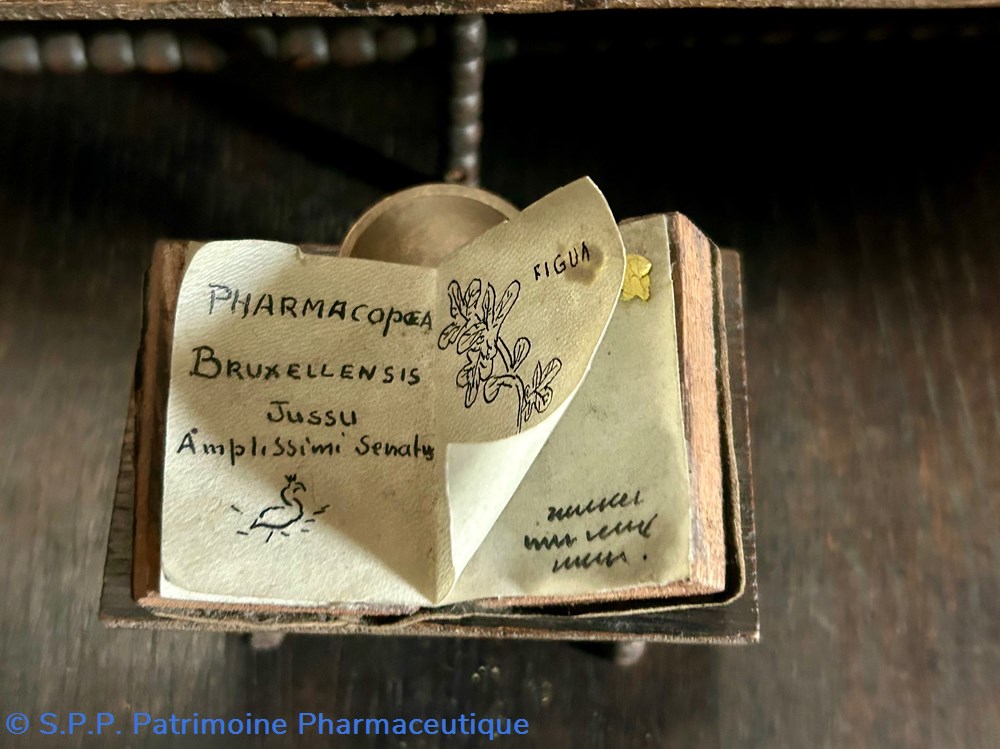 PHARMACOPœA
BRUXELLENSIS
Jussu
Amplissimi Senatus
FIGUA
© S.P.P. Patrimoine Pharmaceutique